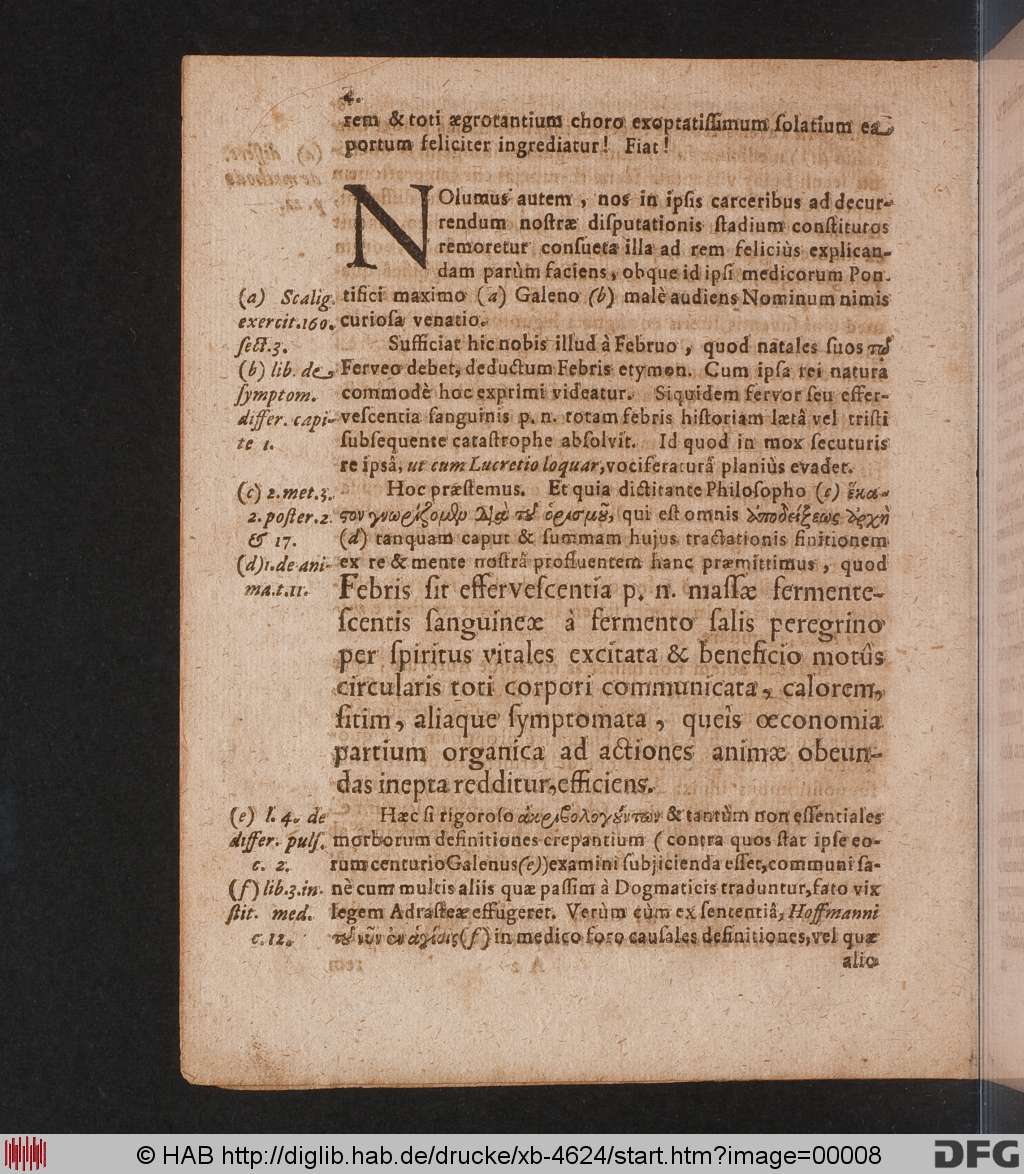 4.
rem & toti ægrotantium choro exoptatiſſimum ſolatium ea
portum feliciter ingrediatur! Fiat!
NOlumus autem, nos in ipſis carceribus ad decur-
rendum noſtræ diſputationis ſtadium conſtitutos
remoretur conſueta illa ad rem feliciùs explican-
dam parùm faciens, obque id ipſi medicorum Pon-
tifici maximo (a) Galeno (b) malè audiens Nominum nimis
curioſa venatio.
(a) Scalig.
exercit. 160.
ſect. 3.
Sufficiat hic nobis illud à Februo, quod natales ſuos τȣ͂
Ferveo debet, deductum Febris etymon. Cum ipſa rei natura
commodè hoc exprimi videatur. Siquidem fervor ſeu effer-
veſcentia ſanguinis p. n. totam febris hiſtoriam lætâ vel triſti
ſubſequente cataſtrophe abſolvit. Id quod in mox ſecuturis
re ipsâ, ut cum Lucretio loquar, vociferaturâ planiùs evadet.
(b) lib. de
ſymptom.
differ. capi-
te 1.
Hoc præſtemus. Et quia dictitante Philoſopho (c) ἕκα-
στον γνωρίζομῳ Δἰὰ τȣ͂ ὁρισμȣ͂, qui eſt omnis ἀποδείξεως ἀρχὴ
(d) tanquam caput & ſummam hujus tractationis finitionem
ex re & mente noſtrâ profluentem hanc præmittimus, quod
Febris ſit efferveſcentia p. n. maſſæ fermente-
ſcentis ſanguineæ à fermento ſalis peregrino
per ſpiritus vitales excitata & beneficio motûs
circularis toti corpori communicata, calorem,
ſitim, aliaque ſymptomata, queîs œconomia
partium organica ad actiones animæ obeun-
das inepta redditur, efficiens.
(c) 2. met. 3.
2. poſter. 2.
& 17.
(d) 1. de ani-
ma. t. 11.
Hæc ſi rigoroſo ἀκριβολογȣ́ντων & tantùm non eſſentiales
morborum definitiones crepantium (contra quos ſtat ipſe eo-
rum centurio Galenus (e)) examini ſubjicienda eſſet, communi ſa-
nè cum multis aliis quæ paſſim à Dogmaticis traduntur, fato vix
legem Adraſteæ effugeret. Verùm cùm ex ſententiâ, Hoffmanni
τȣ͂ νῦν ἐν ἁγίοις (f) in medico foro cauſales definitiones, vel quæ
alio
(e) l. 4. de
differ. pulſ.
c. 2.
(f) lib. 3. in-
ſtit. med.
c. 12.
© HAB http://diglib.hab.de/drucke/xb-4624/start.htm?image=00008
DFG